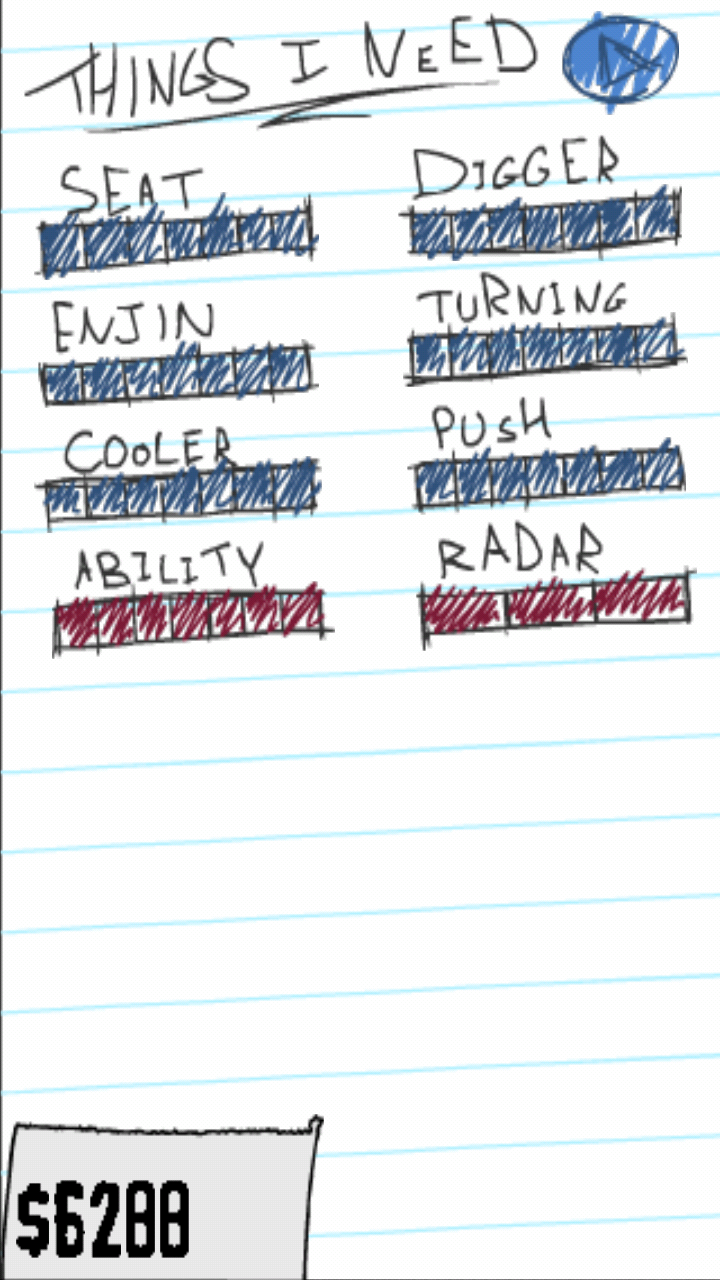 THINGS I NEED
SEAT
DIGGER
ENJIN
TURNING
COOLER
PUSH
ABILITY
RADAR
$6288